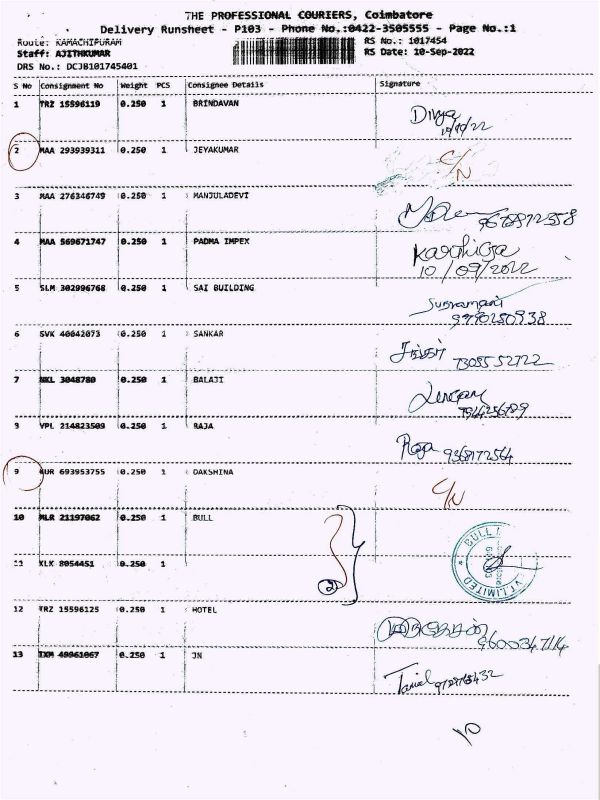 THE PROFESSIONAL COURIERS, Coimbatore
Delivery Runsheet - P103 - Phone No.:0422-3505555 - Page No.:1
Route: KAMACHIPURAM
RS No.: 1017454
Staff: AJITHKUMAR
RS Date: 10-Sep-2022
DRS No.: DCJB101745401
S No Consignment No Weight PCS Consignee Details Signature
1 TRZ 15596119 0.250 1 BRINDAVAN Divya
10/9/22
2 MAA 293939311 0.250 1 JEYAKUMAR C/N
3 MAA 276346749 0.250 1 MANJULADEVI
4 MAA 569671747 0.250 1 PADMA IMPEX
10/09/2022
5 SLM 302996768 0.250 1 SAI BUILDING
6 SVK 40042073 0.250 1 SANKAR
7 NKL 3048780 0.250 1 BALAJI
VPL 214823509 0.250 1 RAJA Raja 9368172564
9 693953755 0.250 1 DAKSHINA C/N
10 MLR 21197062 0.250 1 BULL
11 KLK 8054451 0.250 1
2
BULL
LIMITED
12 TRZ 15596125 0.250 1 HOTEL
13 TXM 49961067 0.250 1 JN
10